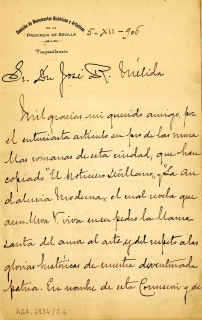 Comisión de Monumentos Históricos y Artísticos
DE LA
PROVINCIA DE SEVILLA
Vicepresidente
5-XII-906
Sr. Dn José R. Mélida
Mil gracias mi querido amigo, por
el entusiasta artículo en pro de las mura
llas romanas de esta ciudad, que han
copiado "El Noticiero Sevillano, y "La An
dalucía Moderna, el cual revela que
aun lleva V. viva en su pecho la llama
santa del amor al arte y del respeto a las
glorias históricas de nuestra desventurada
patria. En nombre de esta Comisión y de
AGA. 6834/26